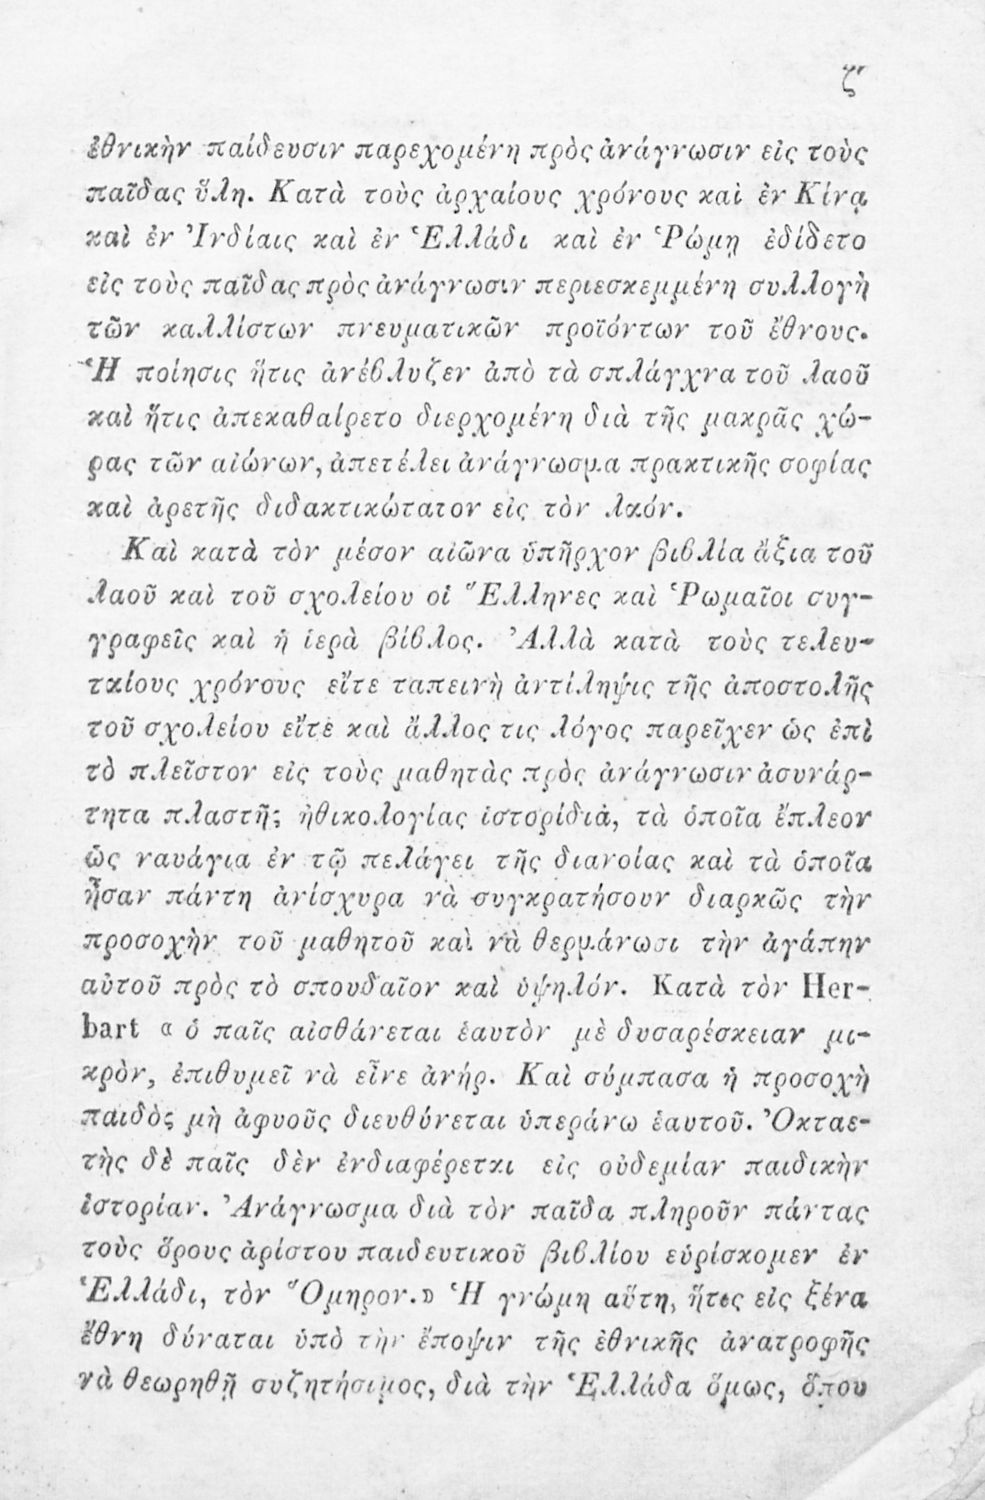 ζ'
ἐθνικὴν παίδευσιν παρεχομένη πρὸς ἀνάγνωσιν εἰς τοὺς
παῖδας ὕλη. Κατὰ τοὺς ἀρχαίους χρόνους καὶ ἐν Κίνᾳ
καὶ ἐν Ἰνδίαις καὶ ἐν Ἑλλάδι καὶ ἐν Ῥώμῃ ἐδίδετο
εἰς τοὺς παῖδας πρὸς ἀνάγνωσιν περιεσκεμμένη συλλογὴ
τῶν καλλίστων πνευματικῶν προϊόντων τοῦ ἔθνους.
Ἡ ποίησις ἥτις ἀνέβλυζεν ἀπὸ τὰ σπλάγχνα τοῦ λαοῦ
καὶ ἥτις ἀπεκαθαίρετο διερχομένη διὰ τῆς μακρᾶς χώ-
ρας τῶν αἰώνων, ἀπετέλει ἀνάγνωσμα πρακτικῆς σοφίας
καὶ ἀρετῆς διδακτικώτατον εἰς τὸν λαόν.
Καὶ κατὰ τὸν μέσον αἰῶνα ὑπῆρχον βιβλία ἄξια τοῦ
λαοῦ καὶ τοῦ σχολείου οἱ Ἕλληνες καὶ Ῥωμαῖοι συγ-
γραφεῖς καὶ ἡ ἱερὰ βίβλος. Ἀλλὰ κατὰ τοὺς τελευ-
ταίους χρόνους εἴτε ταπεινὴ ἀντίληψις τῆς ἀποστολῆς
τοῦ σχολείου εἴτε καὶ ἄλλος τις λόγος παρεῖχεν ὡς ἐπὶ
τὸ πλεῖστον εἰς τοὺς μαθητὰς πρὸς ἀνάγνωσιν ἀσυνάρ-
τητα πλαστῆς ἠθικολογίας ἱστορίδια, τὰ ὁποῖα ἔπλεον
ὡς ναυάγια ἐν τῷ πελάγει τῆς διανοίας καὶ τὰ ὁποῖα
ἦσαν πάντη ἀνίσχυρα νὰ συγκρατήσουν διαρκῶς τὴν
προσοχὴν τοῦ μαθητοῦ καὶ νὰ θερμάνωσι τὴν ἀγάπην
αὐτοῦ πρὸς τὸ σπουδαῖον καὶ ὑψηλόν. Κατὰ τὸν Her-
bart « ὁ παῖς αἰσθάνεται ἑαυτὸν μὲ δυσαρέσκειαν μι-
κρὸν, ἐπιθυμεῖ νὰ εἶνε ἀνήρ. Καὶ σύμπασα ἡ προσοχὴ
παιδὸς μὴ ἀφυοῦς διευθύνεται ὑπεράνω ἑαυτοῦ. Ὀκταε-
τὴς δὲ παῖς δὲν ἐνδιαφέρεται εἰς οὐδεμίαν παιδικὴν
ἱστορίαν. Ἀνάγνωσμα διὰ τὸν παῖδα πληροῦν πάντας
τοὺς ὅρους ἀρίστου παιδευτικοῦ βιβλίου εὑρίσκομεν ἐν
Ἑλλάδι, τὸν Ὅμηρον.» Ἡ γνώμη αὕτη, ἥτις εἰς ξένα
ἔθνη δύναται ὑπὸ τὴν ἔποψιν τῆς ἐθνικῆς ἀνατροφῆς
νὰ θεωρηθῇ συζητήσιμος, διὰ τὴν Ἑλλάδα ὅμως, ὅπου